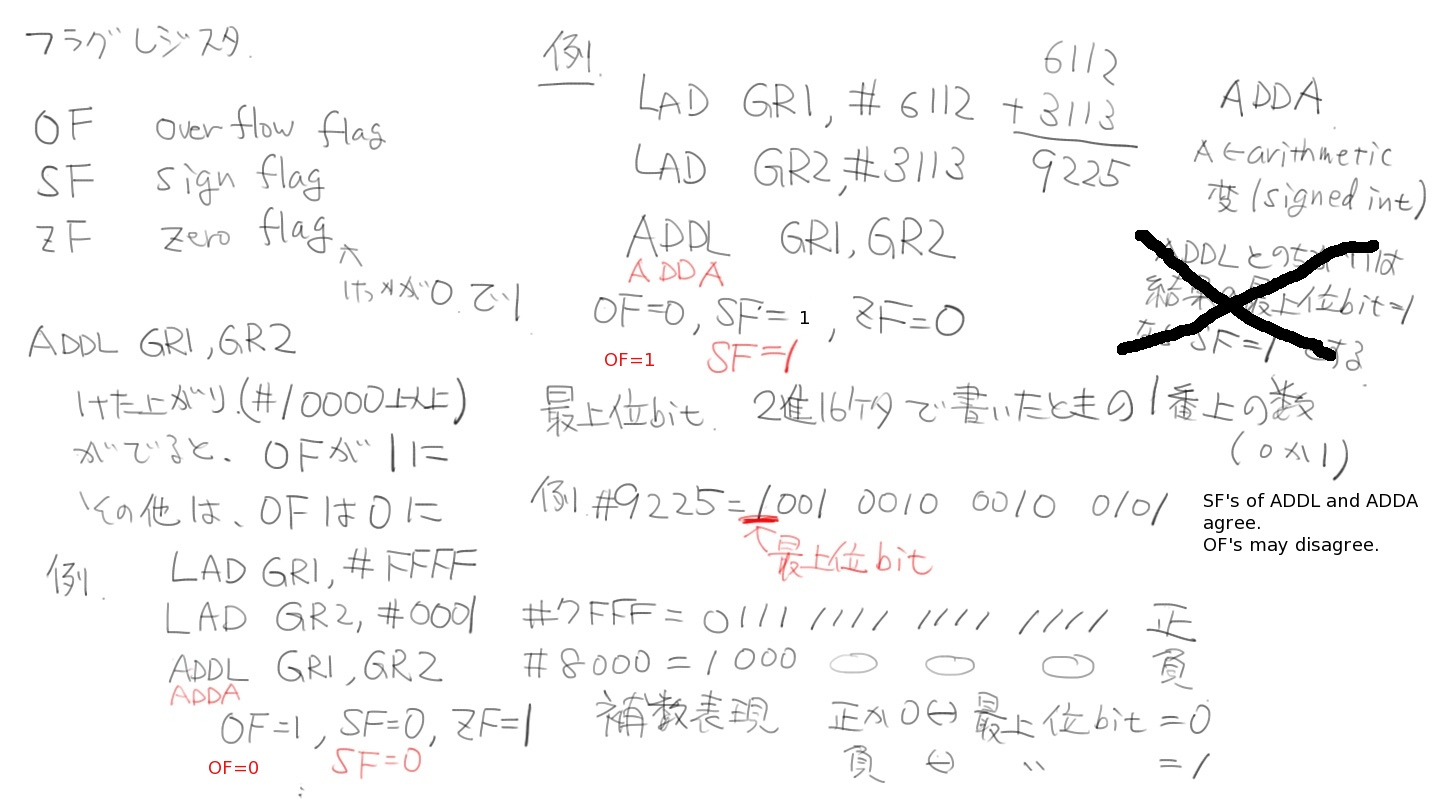 フラグレジスタ.
OF over flow flag
SF sign flag
ZF zero flag
けっかが0で1
ADDL GR1,GR2
けた上がり(#10000以上)
がでると、OFが1に
その他は、OFは0に
例.
LAD GR1,#FFFF
LAD GR2,#0001
ADDL GR1,GR2
ADDA
OF=1,SF=0,ZF=1
OF=0 SF=0
例.
LAD GR1,#6112
LAD GR2,#3113
ADDL GR1,GR2
ADDA
OF=0,SF=1,ZF=0
OF=1 SF=1
6112
+3113
9225
ADDA
A←arithmetic
変(signed int)
ADDLとのちがいは
結果の最上位bit=1
なら SF=1とする
最上位bit. 2進16ケタで書いたときの1番上の数
(0か1)
例.#9225=1001 0010 0010 0101
↑最上位bit
SF's of ADDL and ADDA
agree.
OF's may disagree.
#7FFF=0111 1111 1111 1111 正
#8000=1000 負
補数表現 正か0⇔最上位bit=0
負⇔ 〃 =1